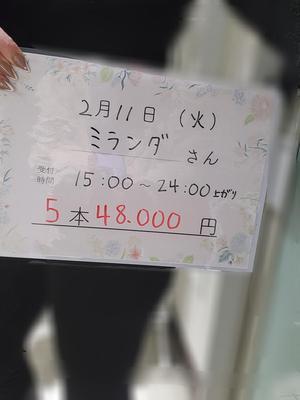 2月11日 (火)
ミランダ さん
受付時間 15:00~24:00上がり
5本48.000円